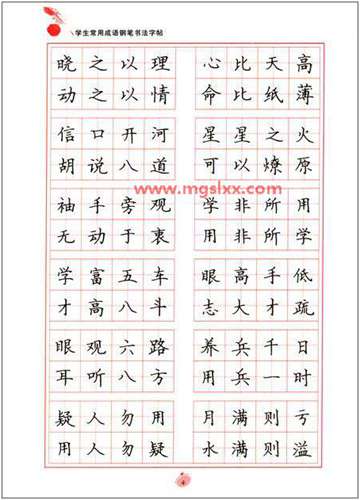 学生常用成语钢笔书法字帖
晓之以理
动之以情
心比天高
命比纸薄
信口开河
胡说八道
星星之火
可以燎原
www.mgslxx.com
袖手旁观
无动于衷
学非所用
用非所学
学富五车
才高八斗
眼高手低
志大才疏
眼观六路
耳听八方
养兵千日
用兵一时
疑人勿用
用人勿疑
月满则亏
水满则溢
4